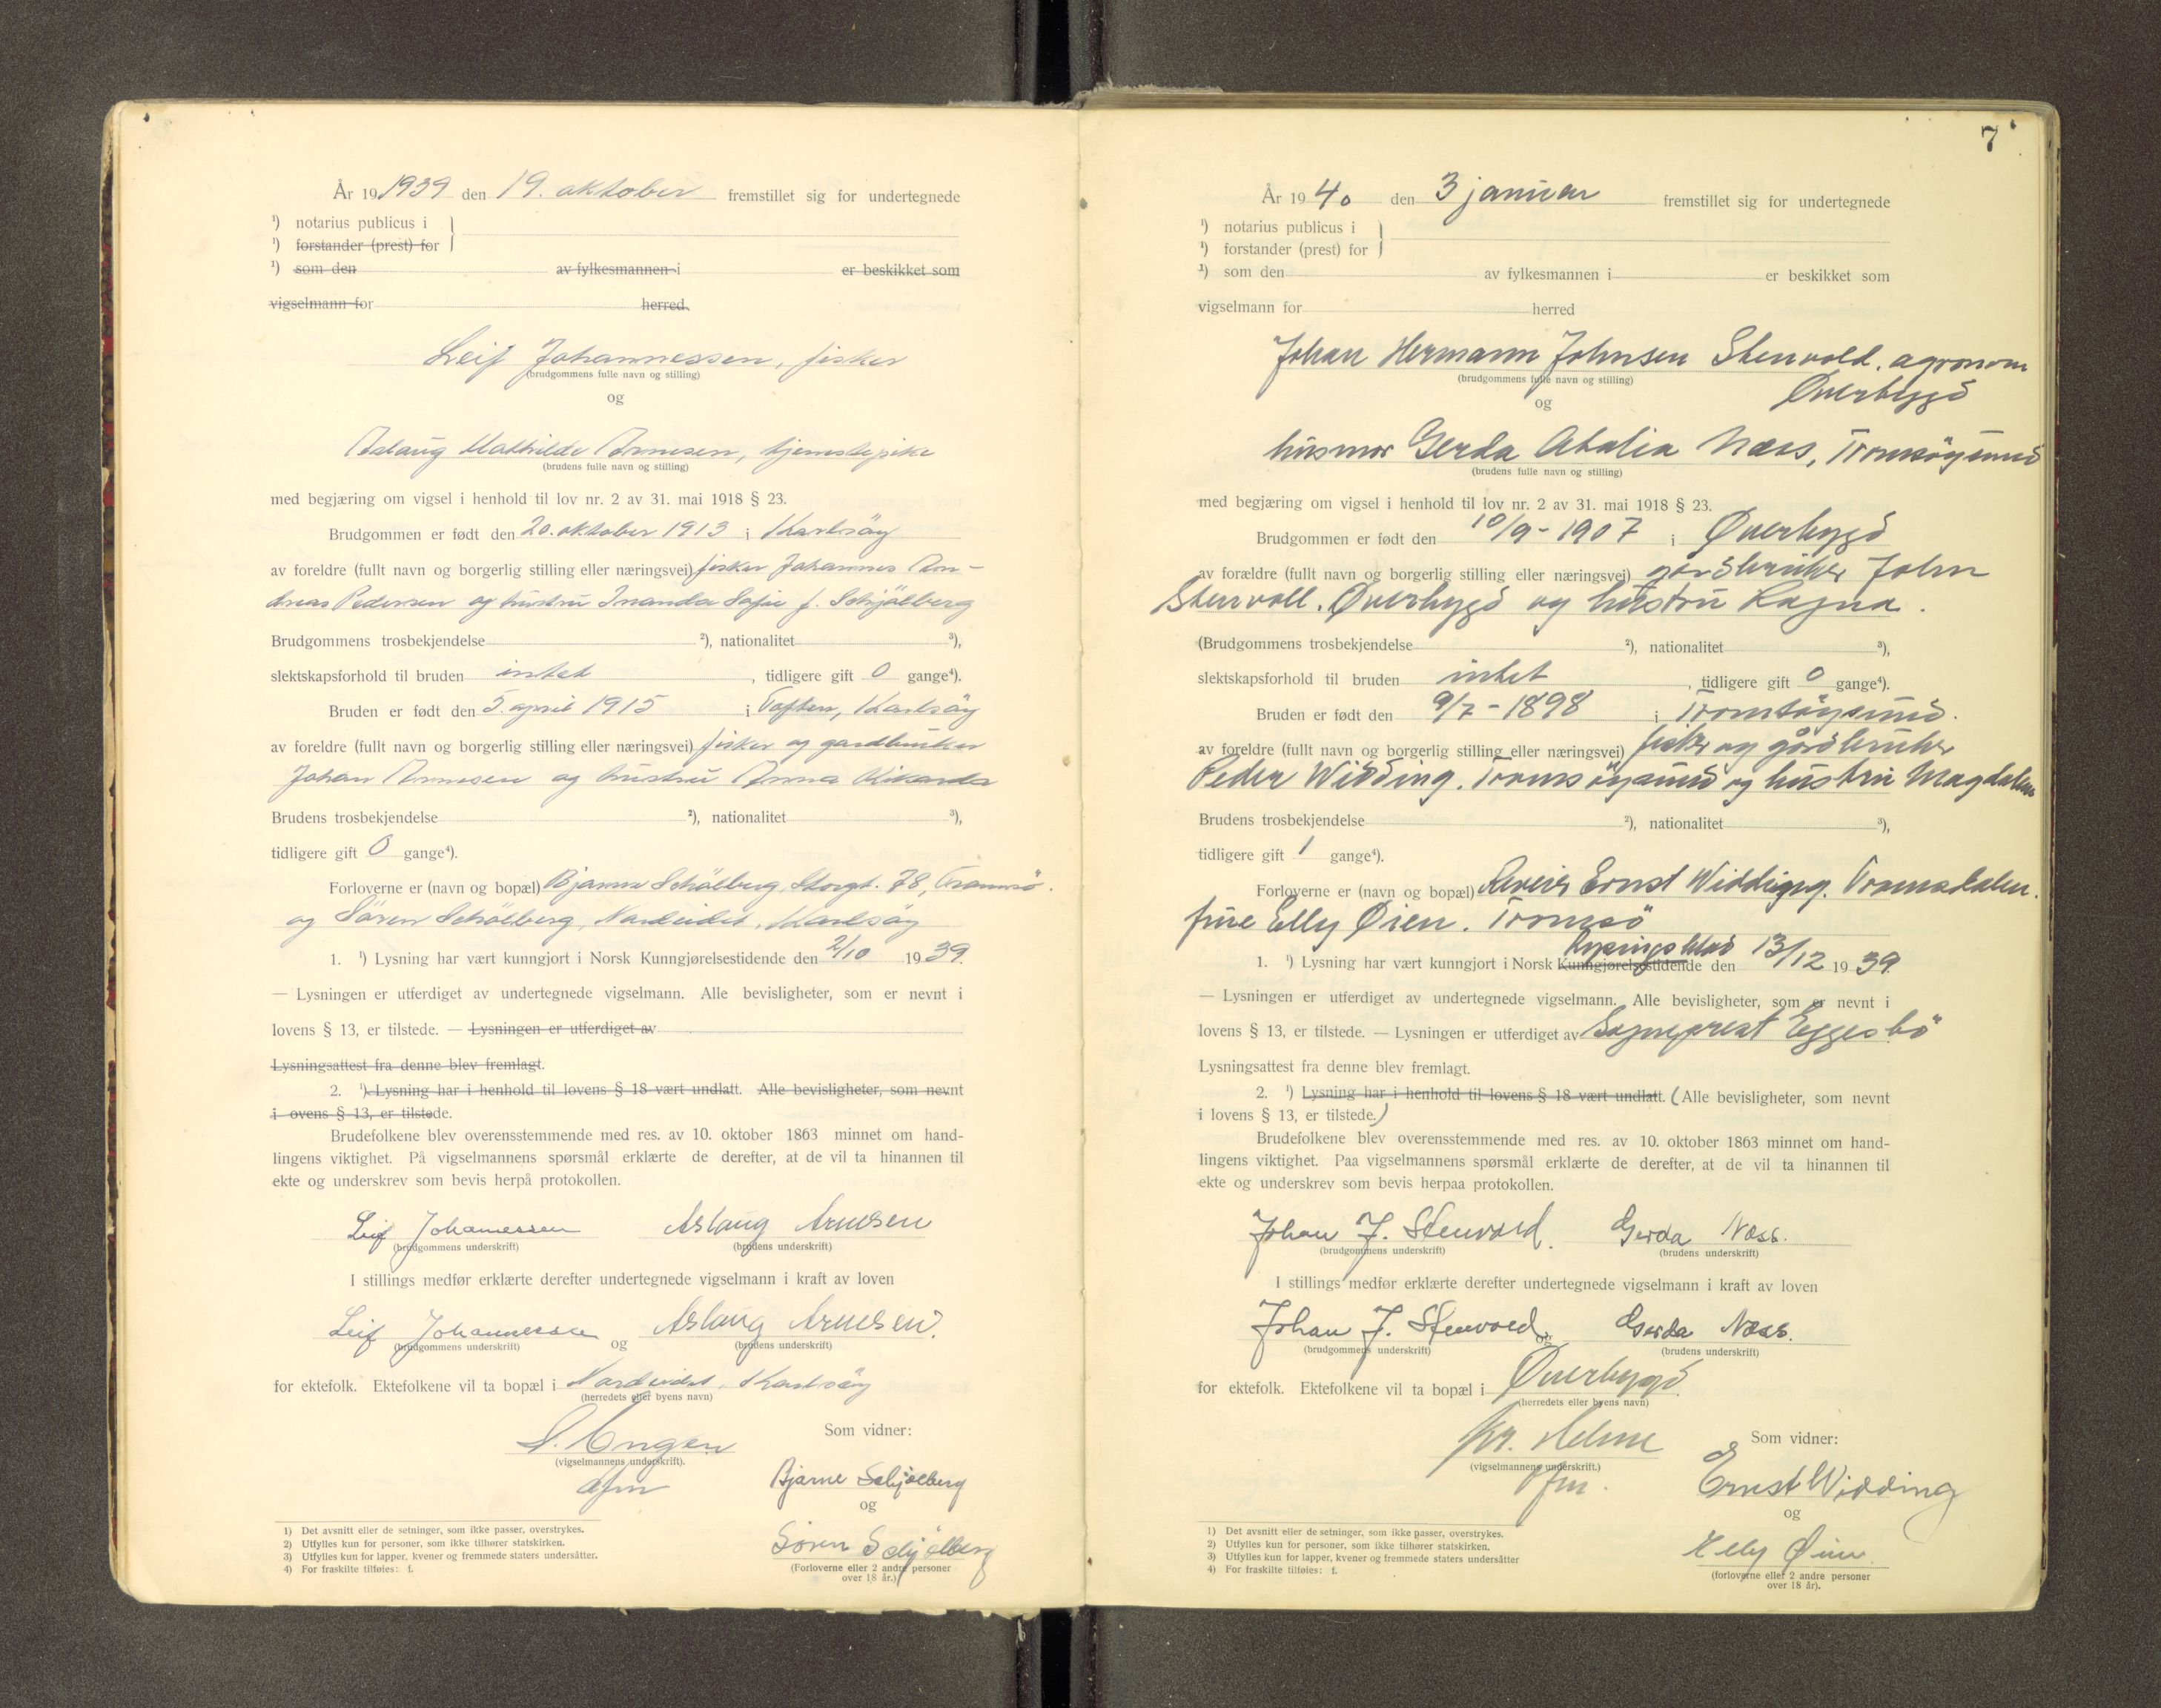 År 19 1939 den 19. oktober fremstillet sig for undertegnede
¹) notarius publicus i
¹) forstander (prest) for
¹) som den av fylkesmannen i er beskikket som
vigselmann for herred.
Leif Johannessen, fisker
(brudgommens fulle navn og stilling)
og
Aslaug Mathilde Arnesen, tjenestepike
(brudens fulle navn og stilling)
med begjæring om vigsel i henhold til lov nr. 2 av 31. mai 1918 § 23.
Brudgommen er født den 20. oktober 1913 i Karlsöy
av foreldre (fullt navn og borgerlig stilling eller næringsvei) fisker Johannes An-
dreas Pedersen og hustru Inanda Sofie f. Schjölberg
Brudgommens trosbekjendelse ²), nationalitet ³),
slektskapsforhold til bruden intet, tidligere gift 0 gange⁴).
Bruden er født den 5. april 1915 i Toften, Karlsöy
av foreldre (fullt navn og borgerlig stilling eller næringsvei) fisker og gardbruker
Johan Arnesen og hustru Anna Rikarda
Brudens trosbekjendelse ²), nationalitet ³),
tidligere gift 0 gange⁴).
Forloverne er (navn og bopæl) Bjarne Schölberg, Storgt. 78, Tromsö.
og Sören Schölberg, Nordeidet, Karlsöy
1. ¹) Lysning har vært kunngjort i Norsk Kunngjørelsestidende den 2/10 1939.
— Lysningen er utferdiget av undertegnede vigselmann. Alle bevisligheter, som er nevnt i
lovens § 13, er tilstede. — Lysningen er utferdiget av
Lysningsattest fra denne blev fremlagt.
2. ¹) Lysning har i henhold til lovens § 18 vært undlatt. Alle bevisligheter, som nevnt
i ovens § 13, er tilstede.
Brudefolkene blev overensstemmende med res. av 10. oktober 1863 minnet om hand-
lingens viktighet. På vigselmannens spørsmål erklærte de derefter, at de vil ta hinannen til
ekte og underskrev som bevis herpå protokollen.
Leif Johannessen Aslaug Arnesen
(brudgommens underskrift) (brudens underskrift)
I stillings medfør erklærte derefter undertegnede vigselmann i kraft av loven
Leif Johannessen og Aslaug Arnesen.
(brudgommens underskrift) (brudens underskrift)
for ektefolk. Ektefolkene vil ta bopæl i Nordeidet, Karlsöy
(herredets eller byens navn)
Som vidner:
(vigselmannens underskrift).
Bjarne Schjølberg
og
Sören Schjølberg
(Forloverne eller 2 andre personer
over 18 år.)
1) Det avsnitt eller de setninger, som ikke passer, overstrykes.
2) Utfylles kun for personer, som ikke tilhører statskirken.
3) Utfylles kun for lapper, kvener og fremmede staters undersåtter.
4) For fraskilte tilføies: f.
7
År 1940 den 3 januar fremstillet sig for undertegnede
¹) notarius publicus i
¹) forstander (prest) for
¹) som den av fylkesmannen i er beskikket som
vigselmann for herred
Johan Hermann Johnsen Stenvold. agronom
(brudgommens fulle navn og stilling)
Øverbygd
og
husmor Gerda Atalia Næss, Tromsöysund
(brudens fulle navn og stilling)
med begjæring om vigsel i henhold til lov nr. 2 av 31. mai 1918 § 23.
Brudgommen er født den 10/9-1907 i Øverbygd
av forældre (fullt navn og borgerlig stilling eller næringsvei) gårdbruker John
Stenvoll. Øverbygd og hustru Ragna.
(Brudgommens trosbekjendelse ²), nationalitet ³),
slektskapsforhold til bruden intet, tidligere gift 0 gange⁴).
Bruden er født den 9/7-1898 i Tromsöysund.
av foreldre (fullt navn og borgerlig stilling eller næringsvei) fisker og gårdbruker
Peder Widding. Tromsöysund og hustru Magdalena
Brudens trosbekjendelse ²), nationalitet ³),
tidligere gift 1 gange⁴).
Forloverne er (navn og bopæl) Ernst Widding. Tromsdalen.
frue Elly Øien. Tromsö
Lysingsblad
1. ¹) Lysning har vært kunngjort i Norsk Kunngjørelsestidende den 13/12 1939.
— Lysningen er utferdiget av undertegnede vigselmann. Alle bevisligheter, som er nevnt i
lovens § 13, er tilstede. — Lysningen er utferdiget av Sogneprest Eggesbö
Lysningsattest fra denne blev fremlagt.
2. ¹) Lysning har i henhold til lovens § 18 vært undlatt. (Alle bevisligheter, som nevnt
i lovens § 13, er tilstede.)
Brudefolkene blev overensstemmende med res. av 10. oktober 1863 minnet om hand-
lingens viktighet. Paa vigselmannens spørsmål erklærte de derefter, at de vil ta hinannen til
ekte og underskrev som bevis herpaa protokollen.
Johan J. Stenvold. Gerda Næss.
(brudgommens underskrift) (brudens underskrift)
I stillings medfør erklærte derefter undertegnede vigselmann i kraft av loven
Johan J. Stenvold og Gerda Næss.
(brudgommens underskrift) (brudens underskrift)
for ektefolk. Ektefolkene vil ta bopæl i Øverbygd.
(herredets eller byens navn)
Som vidner:
(vigselmannens underskrift.)
Ernst Widding
og
Elly Øien.
(forloverne eller 2 andre personer
over 18 år).
1) Det avsnitt eller de setninger, som ikke passer, overstrykes.
2) Utfylles kun for personer, som ikke tilhører statskirken.
3) Utfylles kun for lapper, kvener og fremmede staters undersåtter
4) For fraskilte tilføies: f.